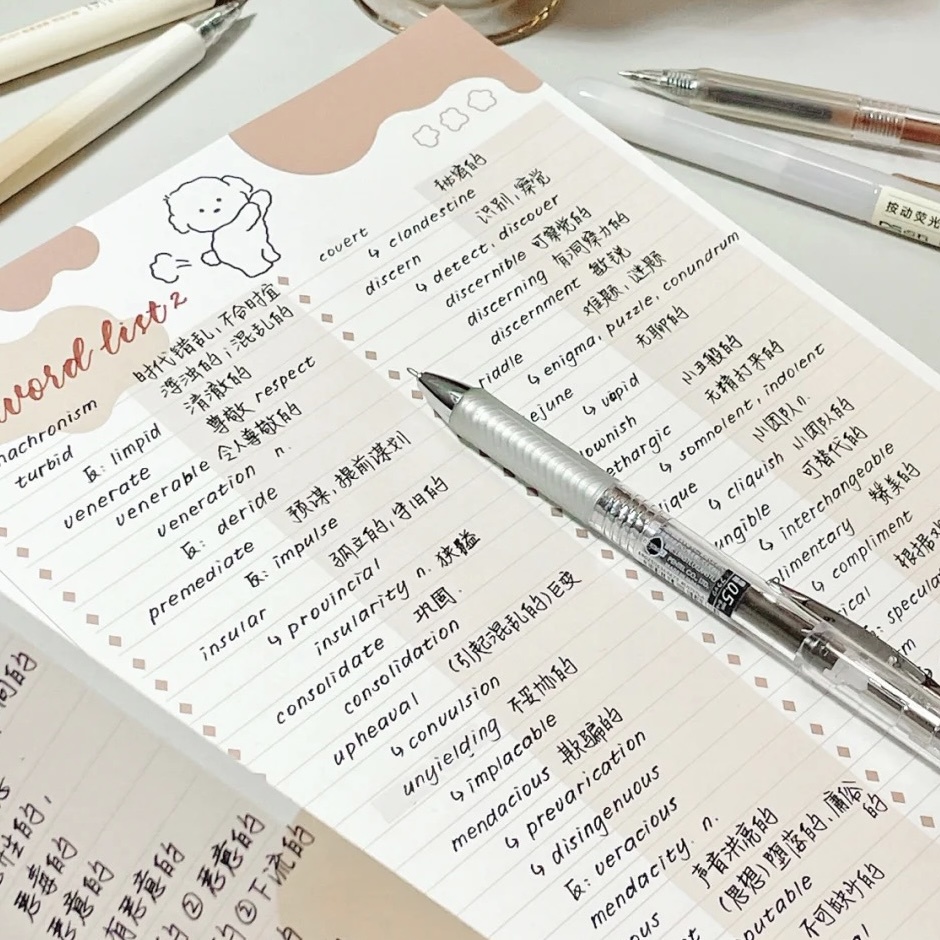 word list 2
时代错乱，不合时宜
nachronism
浑浊的；混乱的
turbid
清澈的
反: limpid
尊敬 respect
venerate
venerable 令人尊敬的
veneration n.
反: deride
预谋，提前谋划
premediate
反: impulse
孤立的，守旧的
insular
↳ provincial
insularity n. 狭隘
consolidate 巩固
consolidation
(引起混乱的)巨变
upheaval
↳ convulsion
unyielding 不妥协的
↳ implacable
mendacious 欺骗的
↳ prevarication
↳ disingenuous
反: veracious
mendacity n.
声音洪亮的
(思想)堕落的，庸俗的
putable
不可缺少的
covert
↳ clandestine
discern 识别，察觉
↳ detect, discover
discernible 可察觉的
discerning 有洞察力的
discernment 敏锐
难题，谜题
iddle
↳ enigma, puzzle, conundrum
无聊的
ejune
↳ vapid
小丑般的
lownish
无精打采的
ethargic
↳ somnolent, indolent
小团队n.
lique
↳ cliquish 小团队的
可替代的
ungible
↳ interchangeable
赞美的
limentary
↳ compliment
根据
ical
specula
按动荧光
PENTEL CO., LTD.
0.5
生的，
恶毒的
恶意的
有恶意的
的 ② 恶意的
的 ② 下流的